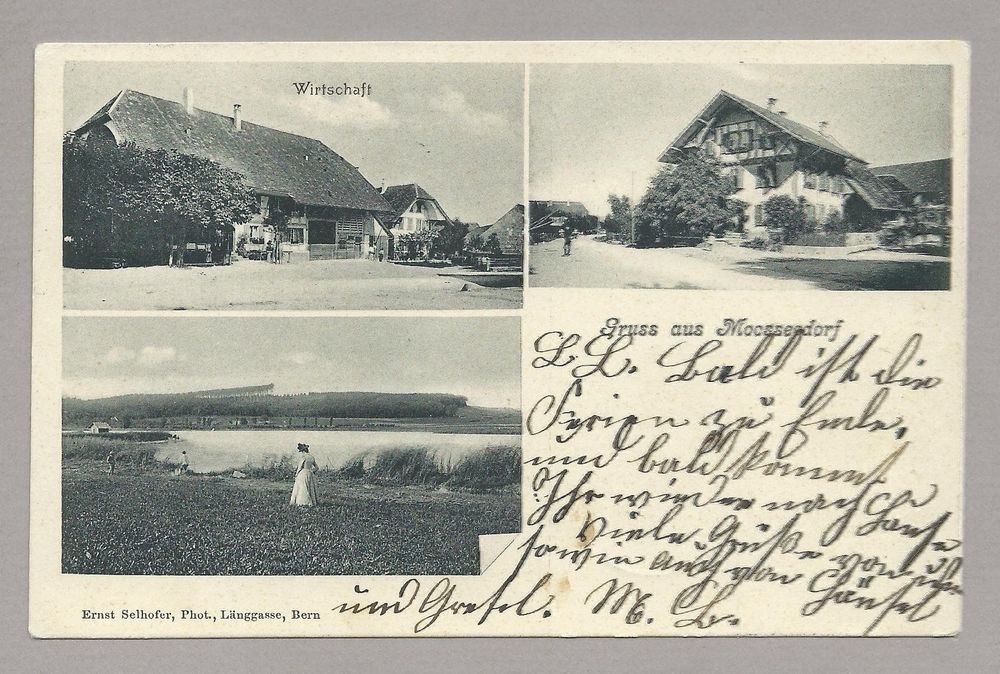 Wirtschaft
Gruss aus Moosseedorf
L L. Bald ist die
Ferien zu Ende,
und bald kommt
Ihr wieder nach Hause
Viele Grüße von
sowie auch von Hänsel
und Gretel. M. L.
Ernst Selhofer, Phot., Länggasse, Bern